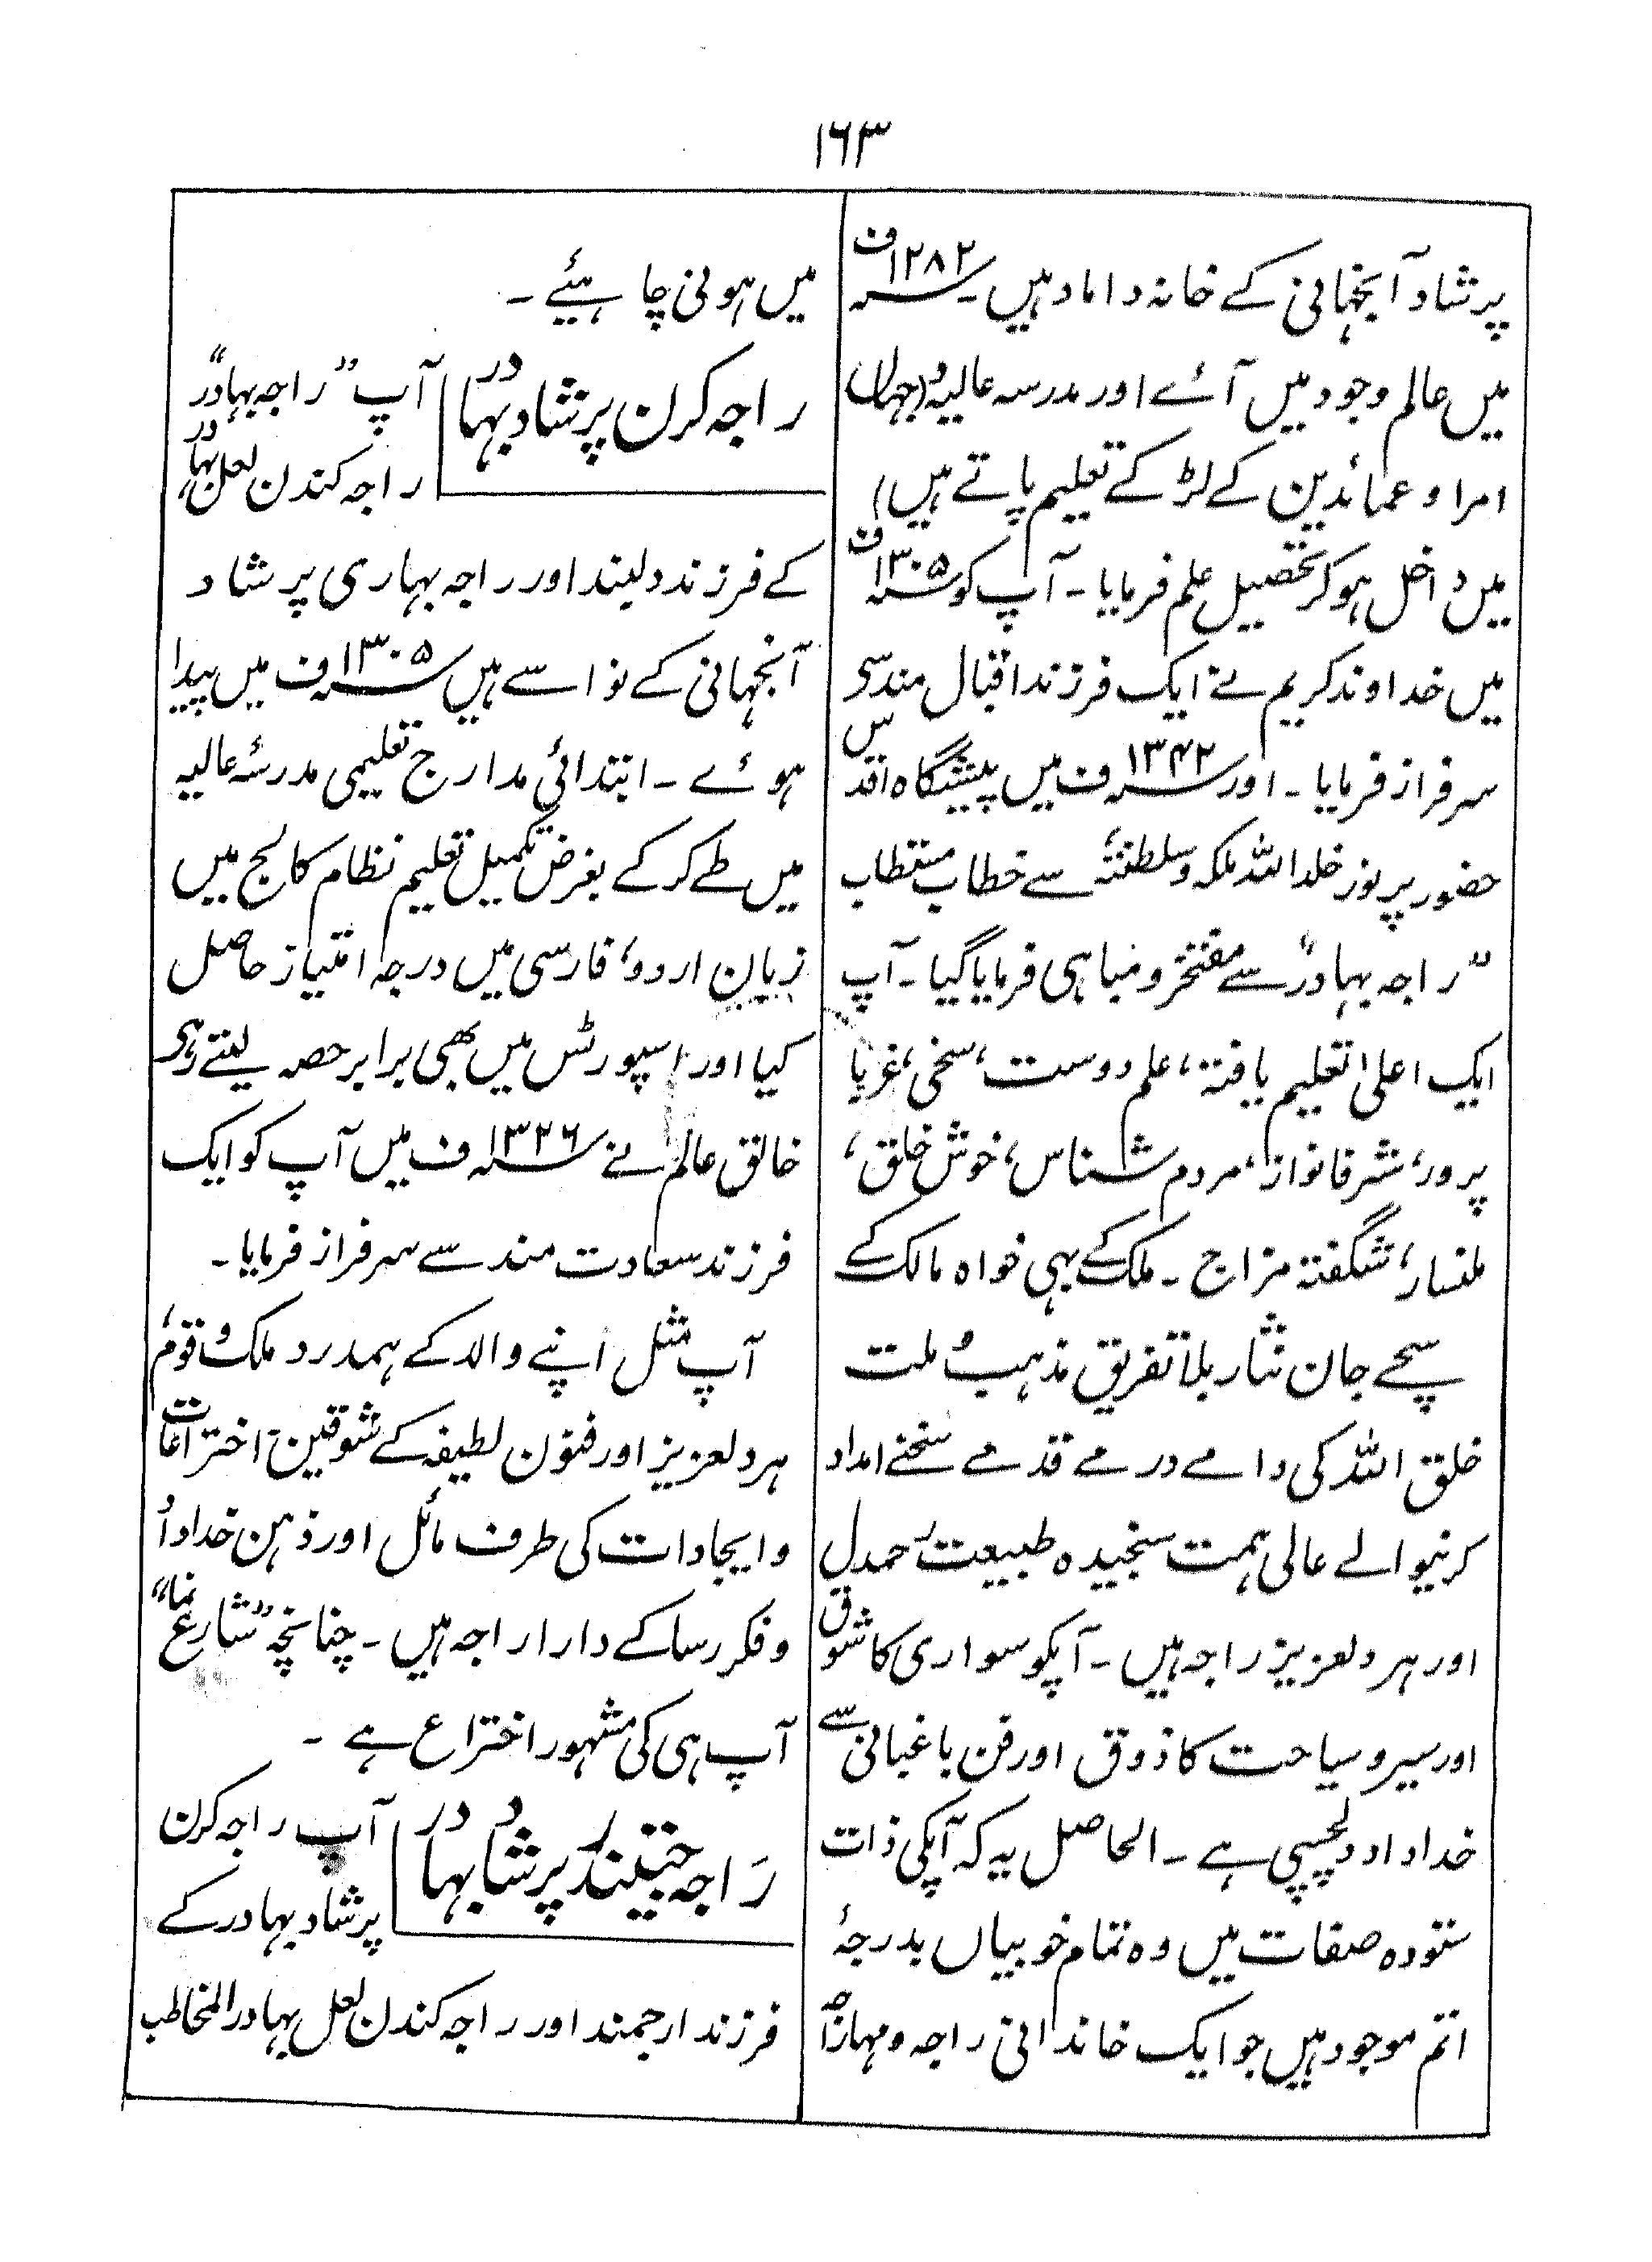 ۱۶۳
پرشاد آنجہانی کے خانہ داماد ہیں۔ سنہ ۱۲۸۲ف
میں عالم وجود میں آئے اور مدرسہ عالیہ (جہاں
امرا و عمائدین کے لڑکے تعلیم پاتے ہیں)
میں داخل ہوکر تحصیل علم فرمایا۔ آپ کو سنہ ۱۳۰۵ف
میں خداوند کریم نے ایک فرزند اقبال مند سی
سرفراز فرمایا۔ اور سنہ ۱۳۴۲ف میں پیشگاہ اقدس
حضور پرنور خلد اللہ ملکہ و سلطنتہٗ سے خطاب مستطاب
”راجہ بہادر“ سے مفتخر و مباہی فرمایا گیا۔ آپ
ایک اعلیٰ تعلیم یافتہ، علم دوست، سخی، غربا
پرور، شرفا نواز، مردم شناس، خوش خلق،
ملنسار، شگفتہ مزاج۔ ملک کے بہی خواہ مالک کے
سچے جان نثار بلا تفریق مذہب و ملت
خلق اللہ کی دامے درمے قدمے سخنے امداد
کرنیوالے عالی ہمت سنجیدہ طبیعت رحمدل
اور ہر دلعزیز راجہ ہیں۔ آپکو سواری کا شوق
اور سیر و سیاحت کا ذوق اور فن باغبانی سے
خداداد دلچسپی ہے۔ الحاصل یہ کہ آپکی ذات
ستودہ صفات میں وہ تمام خوبیاں بدرجۂ
اتم موجود ہیں جو ایک خاندانی راجہ و مہاراجہ
میں ہونی چاہیئے۔
راجہ کرن پرشاد بہادر
آپ ”راجہ بہادر“
راجہ کندن لعل بہادر
کے فرزند دلبند اور راجہ بہاری پرشاد
آنجہانی کے نواسے ہیں سنہ ۱۳۰۵ف میں پیدا
ہوئے۔ ابتدائی مدارج تعلیمی مدرسۂ عالیہ
میں طے کرکے بغرض تکمیل تعلیم نظام کالج میں
زبان اردو، فارسی میں درجہ امتیاز حاصل
کیا اور اسپورٹس میں بھی برابر حصہ لیتے رہی
خالق عالم نے سنہ ۱۳۲۶ف میں آپ کو ایک
فرزند سعادت مند سے سرفراز فرمایا۔
آپ مثل اپنے والد کے ہمدرد ملک و قوم،
ہر دلعزیز اور فنون لطیفہ کے شوقین، اختراعات
و ایجادات کی طرف مائل اور ذہن خداداد
و فکر رسا کے دارا راجہ ہیں۔ چنانچہ ”شارع نما“
آپ ہی کی مشہور اختراع ہے۔
راجہ جتیندر پرشاد بہادر
آپ راجہ کرن
پرشاد بہادر کے
فرزند ارجمند اور راجہ کندن لعل بہادر المخاطب